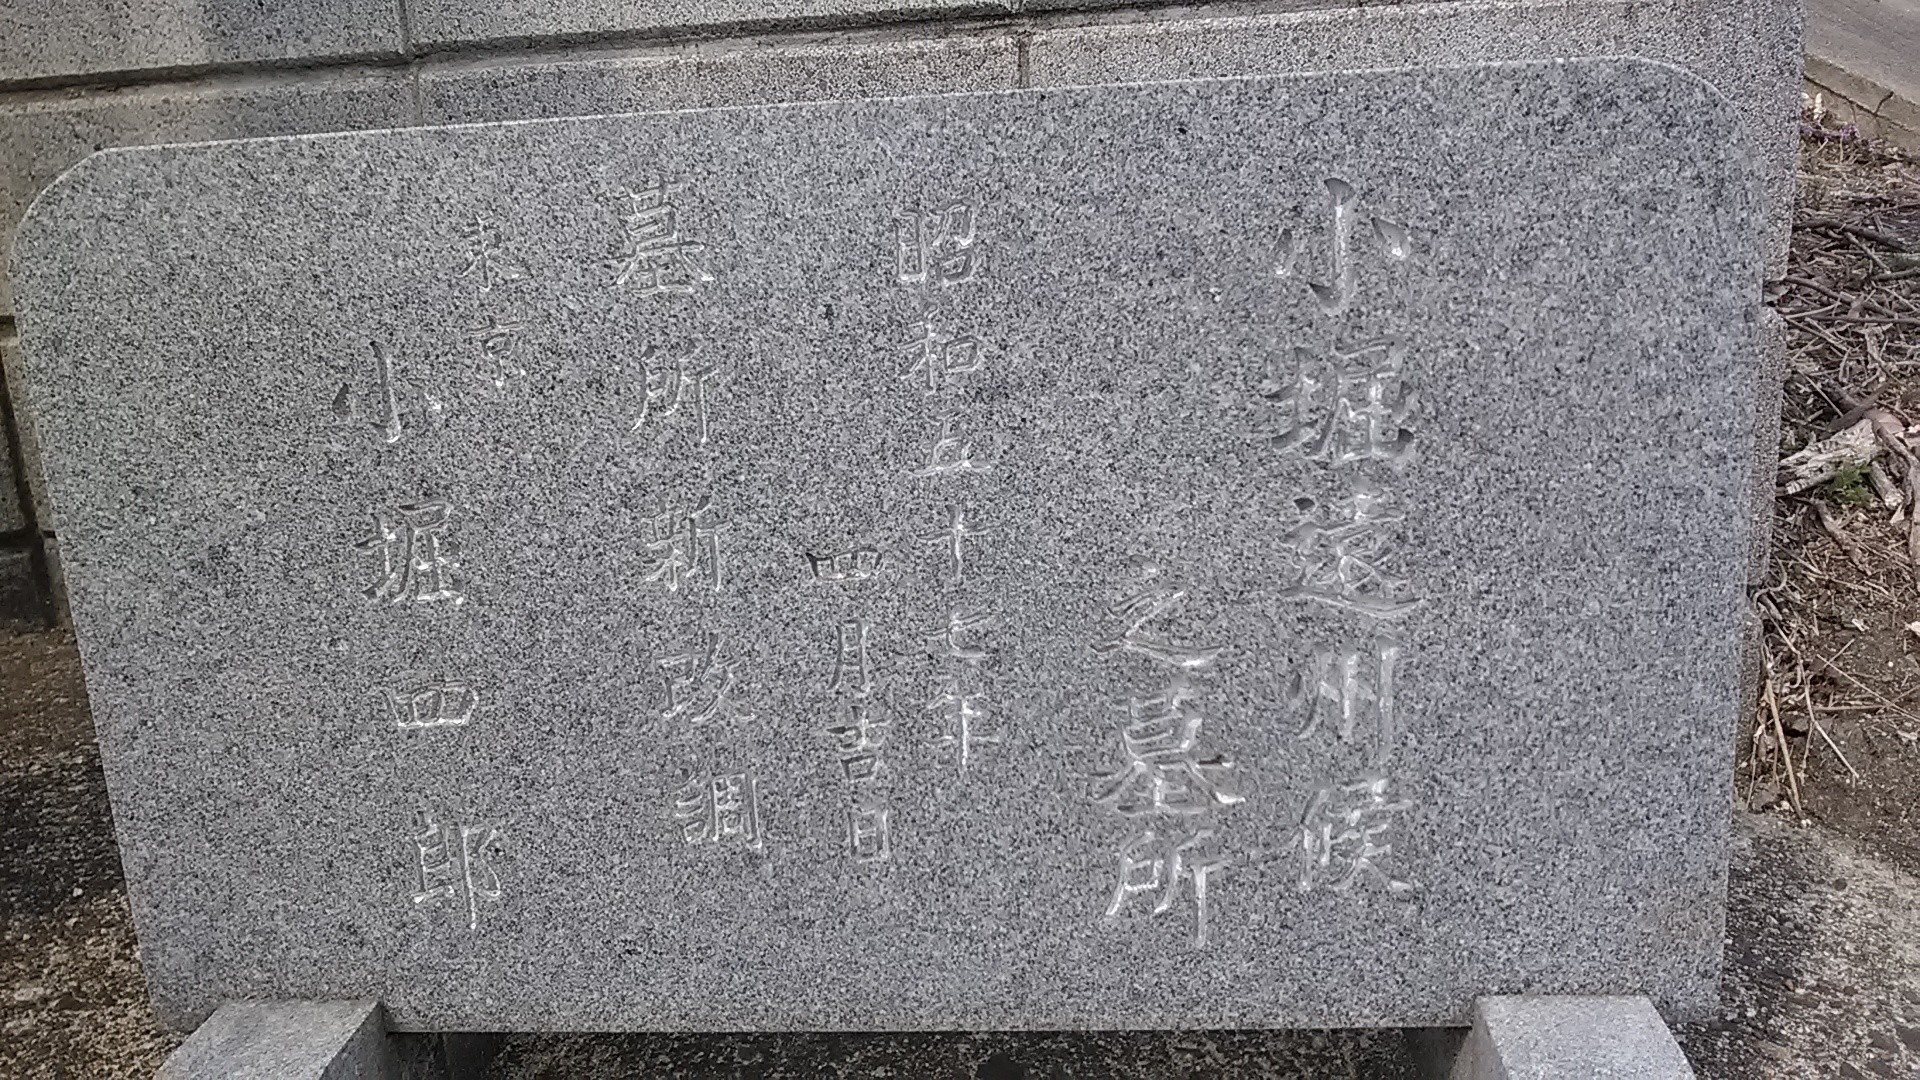 小堀遠州候
之墓所
昭和五十七年
四月吉日
墓所新改調
東京
小堀四郎